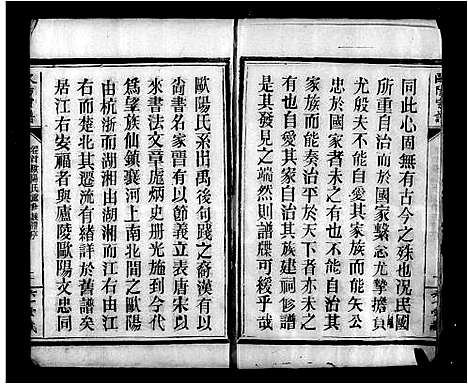 同此心固無有古今之殊也況民國
所重自治而於國家繫念尤摯擔負
尤殷夫不能自愛其家族而能矢公
忠於國家者未之有也不能自治其
家族而能奏治平於天下者亦未之
有也人欲自治其族建祠修譜
是其發見之端然則譜牒可緩乎哉
歐陽氏系出禹後句踐之裔漢有以
尚書名家晉有以節義立表唐宋以
來書法文章虎炳史册光施到今代
爲望族仙鎮襄河上南北間之歐陽
由杭浙而湖湘由湖湘而江右由江
右而楚北其遷流有緒詳於舊譜矣
居江右安福者與廬陵歐陽文忠同